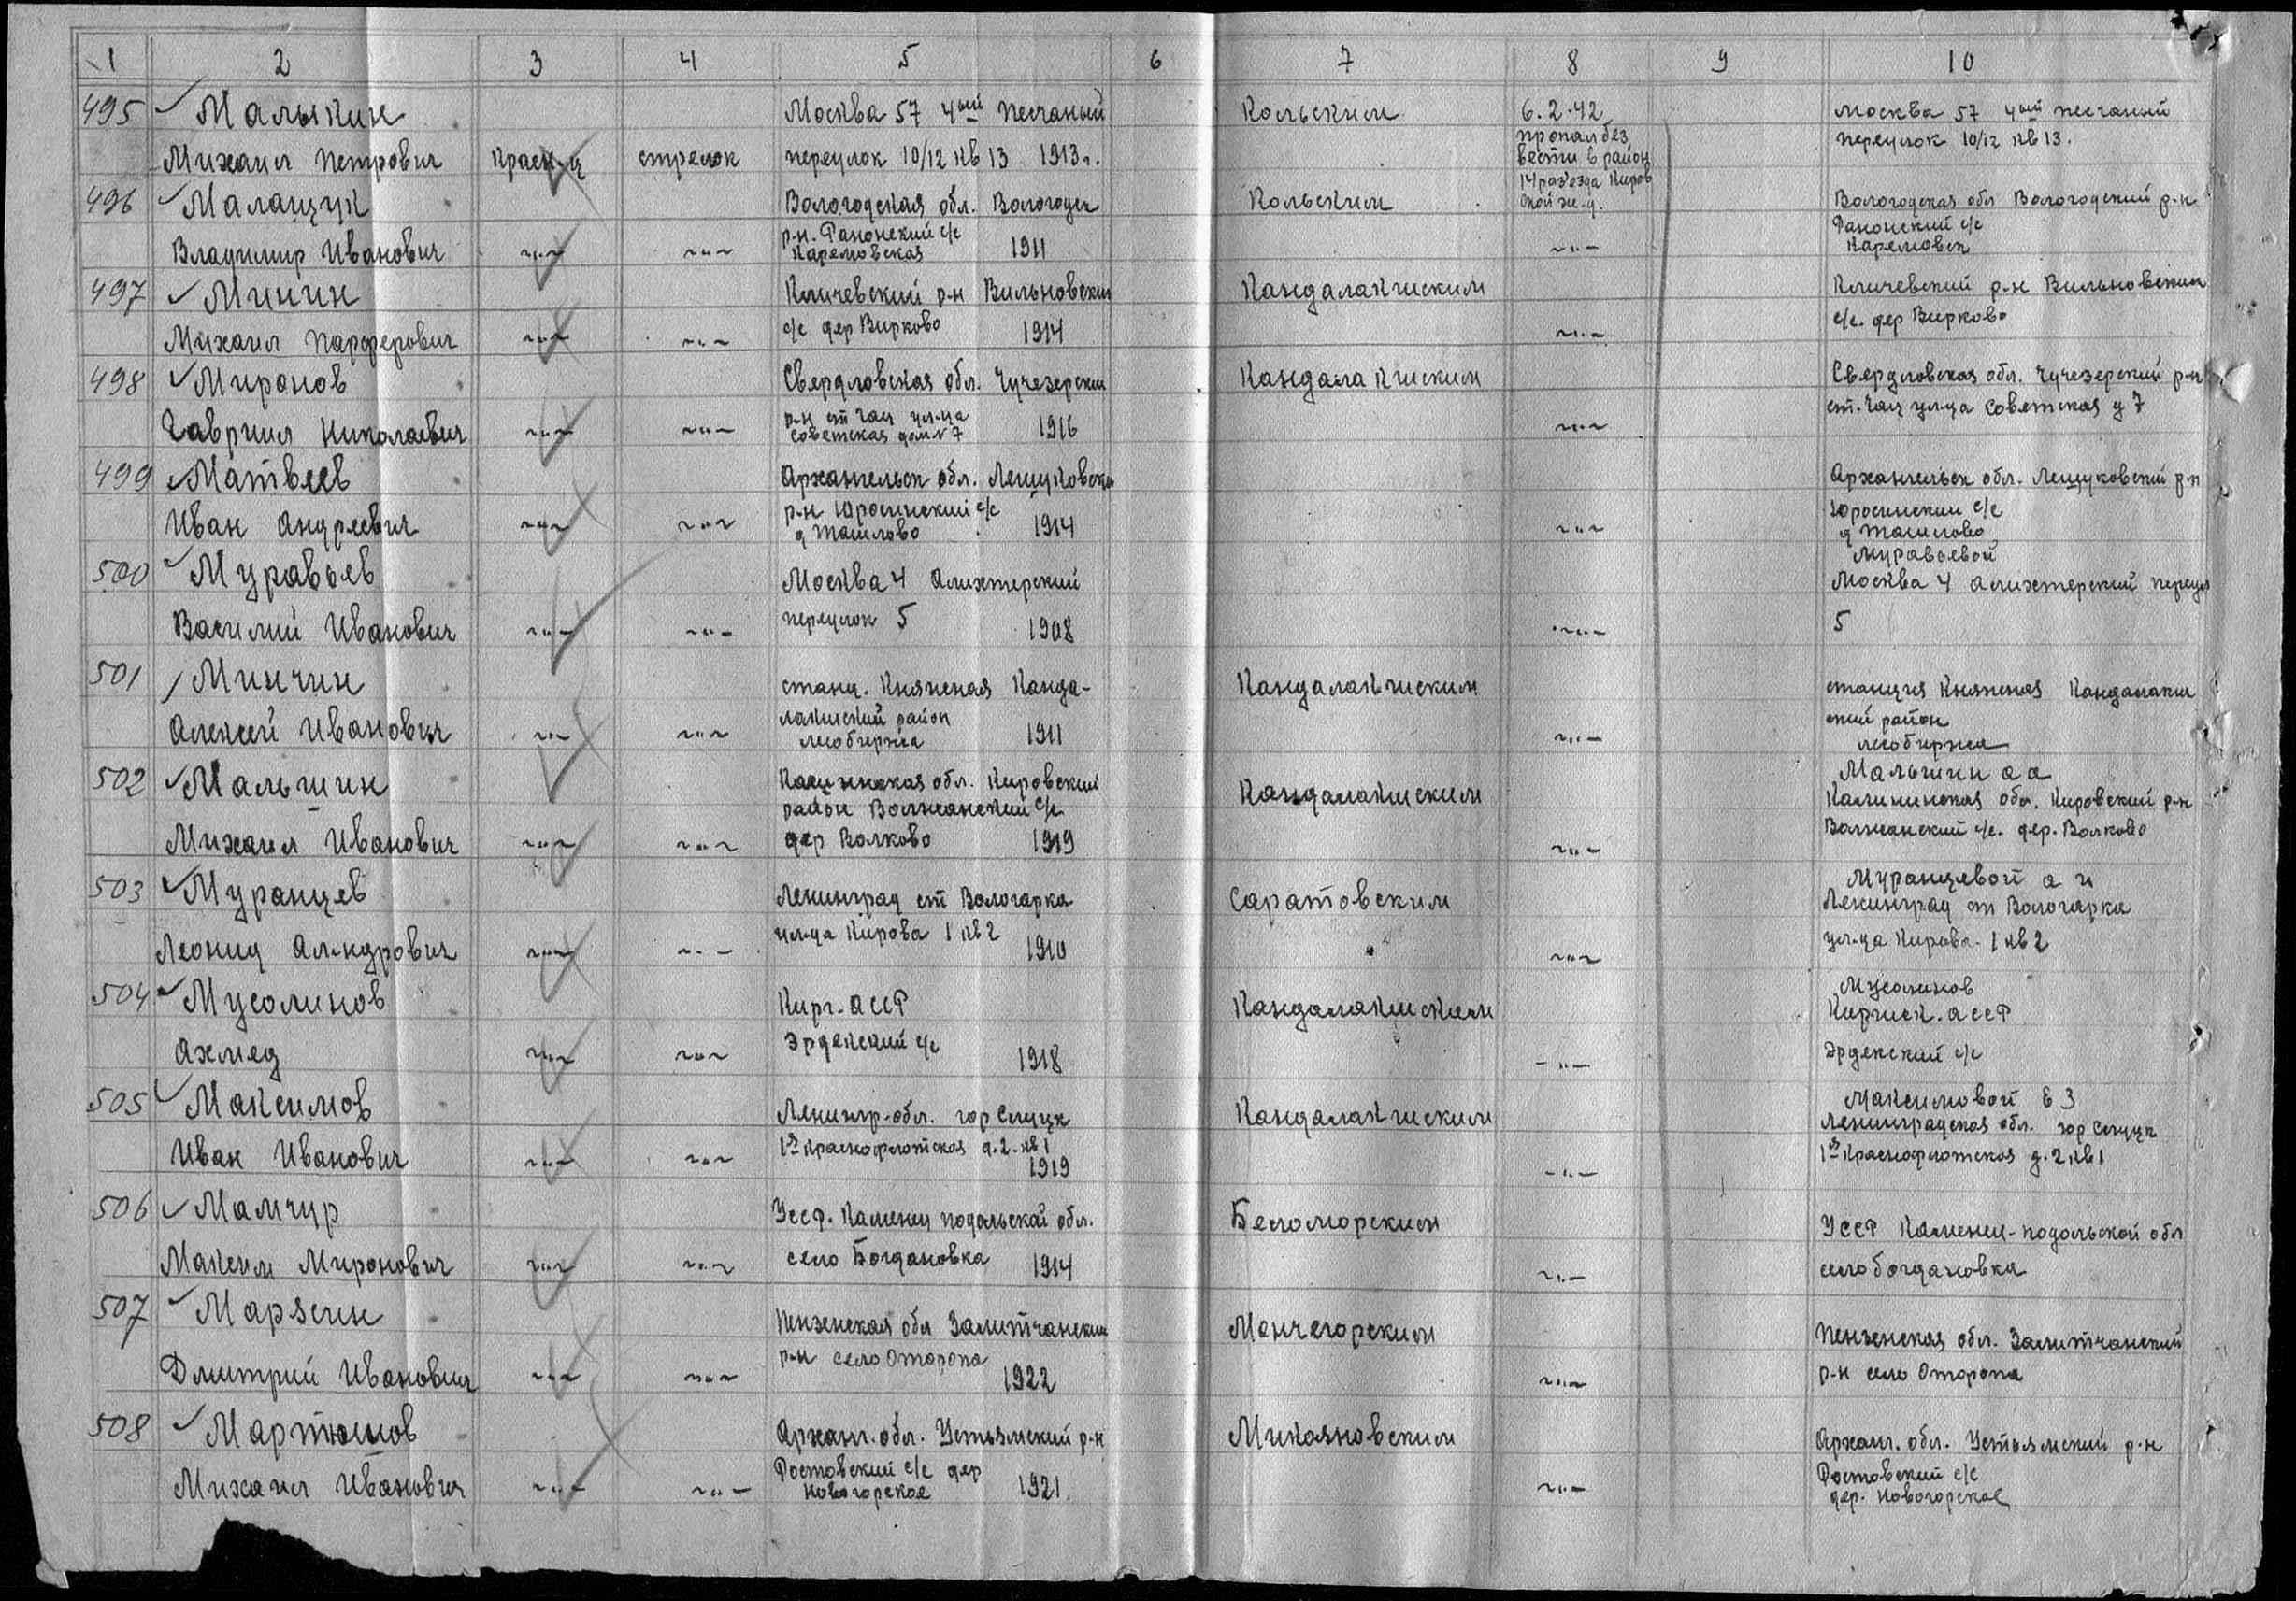 1 2 3 4 5 6 7 8 9 10
495 Малыкин Москва 57 4ый песчаный Кольским 6.2.42 Москва 57 4ый песчаный
пропал без
Михаил Петрович Красн-ц стрелок переулок 10/12 кв 13 1913г. вести в район переулок 10/12 кв 13.
14 раз'езда Киров
496 Маланчук Вологодская обл. Вологодск Кольским ской ж.д. Вологодская обл Вологодский р-н
р-н. с/с с/с
Владимир Иванович -"- -"- 1911 -"-
497 Минин Кличевский р-н Вильновский Кандалакшским Кличевский р-н Вильновский
Михаил -"- -"- с/с дер Вирково 1914 -"- с/с. дер Вирково
498 Миронов Свердловская обл. Кандалакшским Свердловская обл. р-н
р-н ст ул-ца
Гавриил Николаевич -"- -"- Советская дом N 7 1916 -"- ст. ул-ца Советская д 7
499 Матвеев Архангельск обл. Лешуковский Архангельск обл. Лешуковский р-н
р-н с/с с/с
Иван Андреевич -"- -"- д 1914 -"- д
Муравьевой
500 Муравьев Москва 4 Москва 4
Василий Иванович -"- -"- переулок 5 1908 -"- 5
501 Минчин станц. Княжная Канда- Кандалакшским станция Княжная Кандалакш
лакшский район ский район
Алексей Иванович -"- -"- лесобиржа 1911 -"- лесобиржа
Малышин а а
502 Малышин Калининская обл. Кировский Кандалакшским Калининская обл. Кировский р-н
район Волжанский с/с
Михаил Иванович -"- -"- дер Волково 1919 -"- Волжанский с/с. дер. Волково
Муранцевой а и
503 Муранцев Ленинград ст Вологарка Саратовским Ленинград ст Вологарка
Леонид Ал-ндрович -"- -"- ул-ца Кирова 1 кв 2 1910 -"- ул-ца Кирова 1 кв 2
Мусалинов
504 Мусалинов Кирг. АССР Кандалакшским АССР
Ахмед -"- -"- Эрдекский с/с 1918 -"- Эрдекский с/с
Максимовой Е З
505 Максимов Ленингр-обл. гор Слуцк Кандалакшским Ленинградская обл. гор Слуцк
Иван Иванович -"- -"- 1я Краснофлотская д. 2. кв 1 1919 -"- 1я Краснофлотская д. 2 кв 1
506 Мамчур УССР. Каменец подольской обл. Беломорским УССР Каменец-подольской обл
Максим Миронович -"- -"- село Богдановка 1914 -"- село Богдановка
507 Марзин Пензенская обл Мончегорским Пензенская обл.
Дмитрий Иванович -"- -"- р-н село Оторопа 1922 -"- р-н село Оторопа
508 Мартюшов Арханг. обл. Устьянский р-н Микояновским Арханг. обл. Устьянский р-н
Ростовский с/с дер Ростовский с/с
Михаил Иванович -"- -"- Новогорское 1921. -"- дер. Новогорское